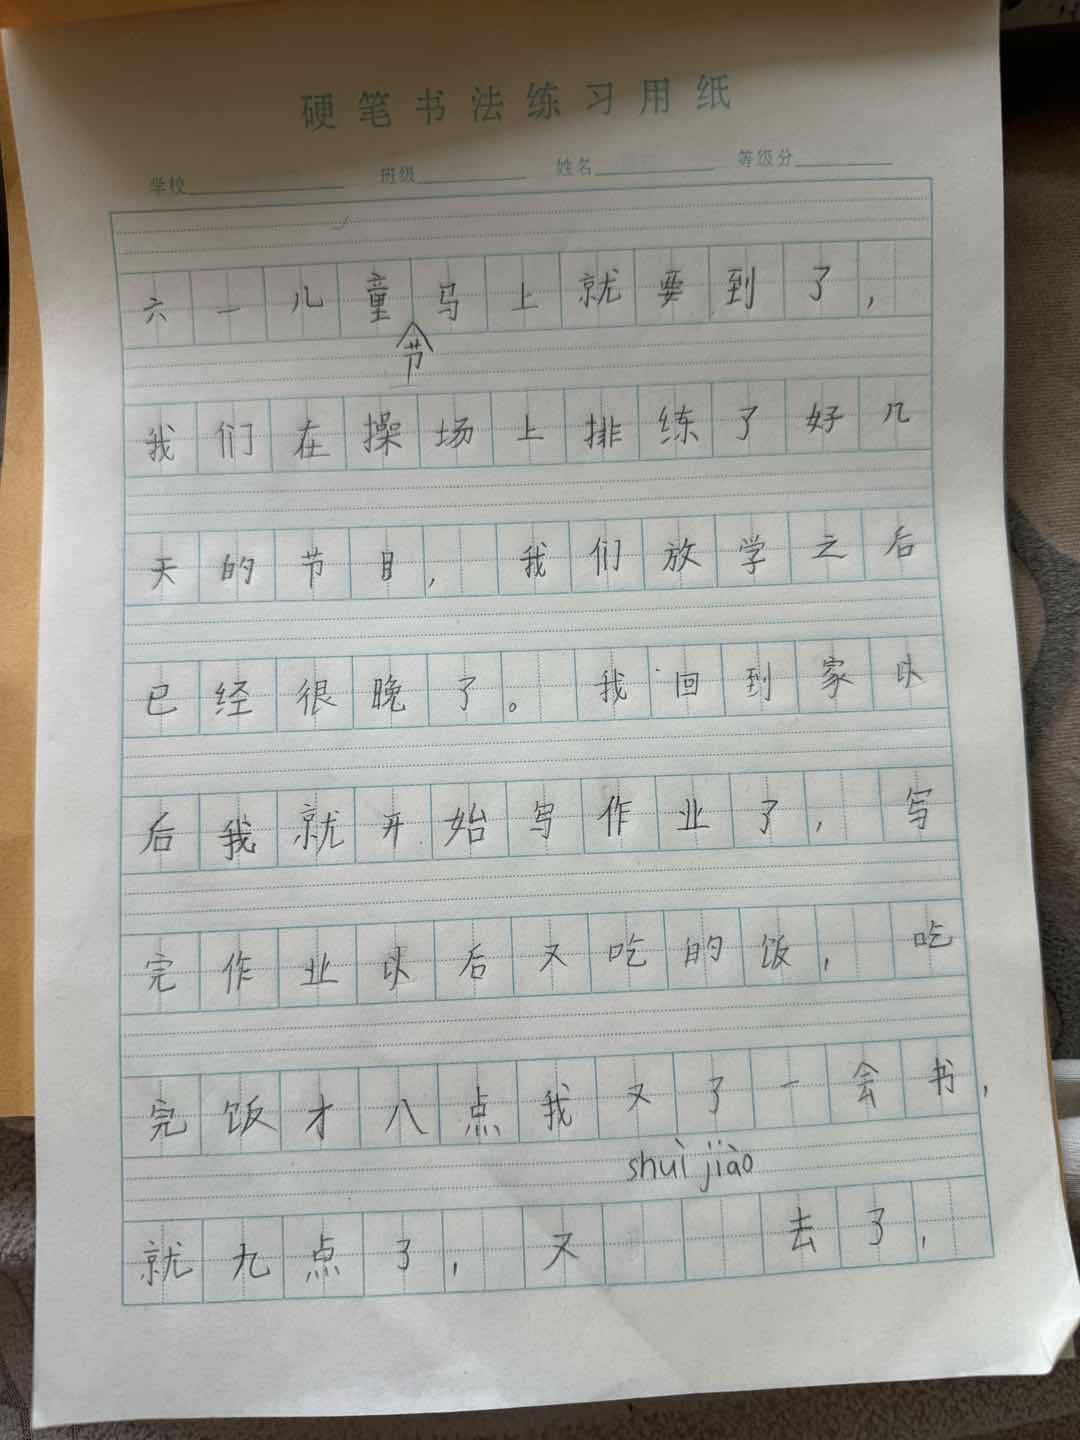 硬笔书法练习用纸
学校 班级 姓名 等级分
六一儿童节马上就要到了，
我们在操场上排练了好几
天的节目，我们放学之后
已经很晚了。我回到家以
后我就开始写作业了，写
完作业以后又吃的饭，吃
完饭才八点我又了一会书，
shuì jiào
就九点了，又去了，